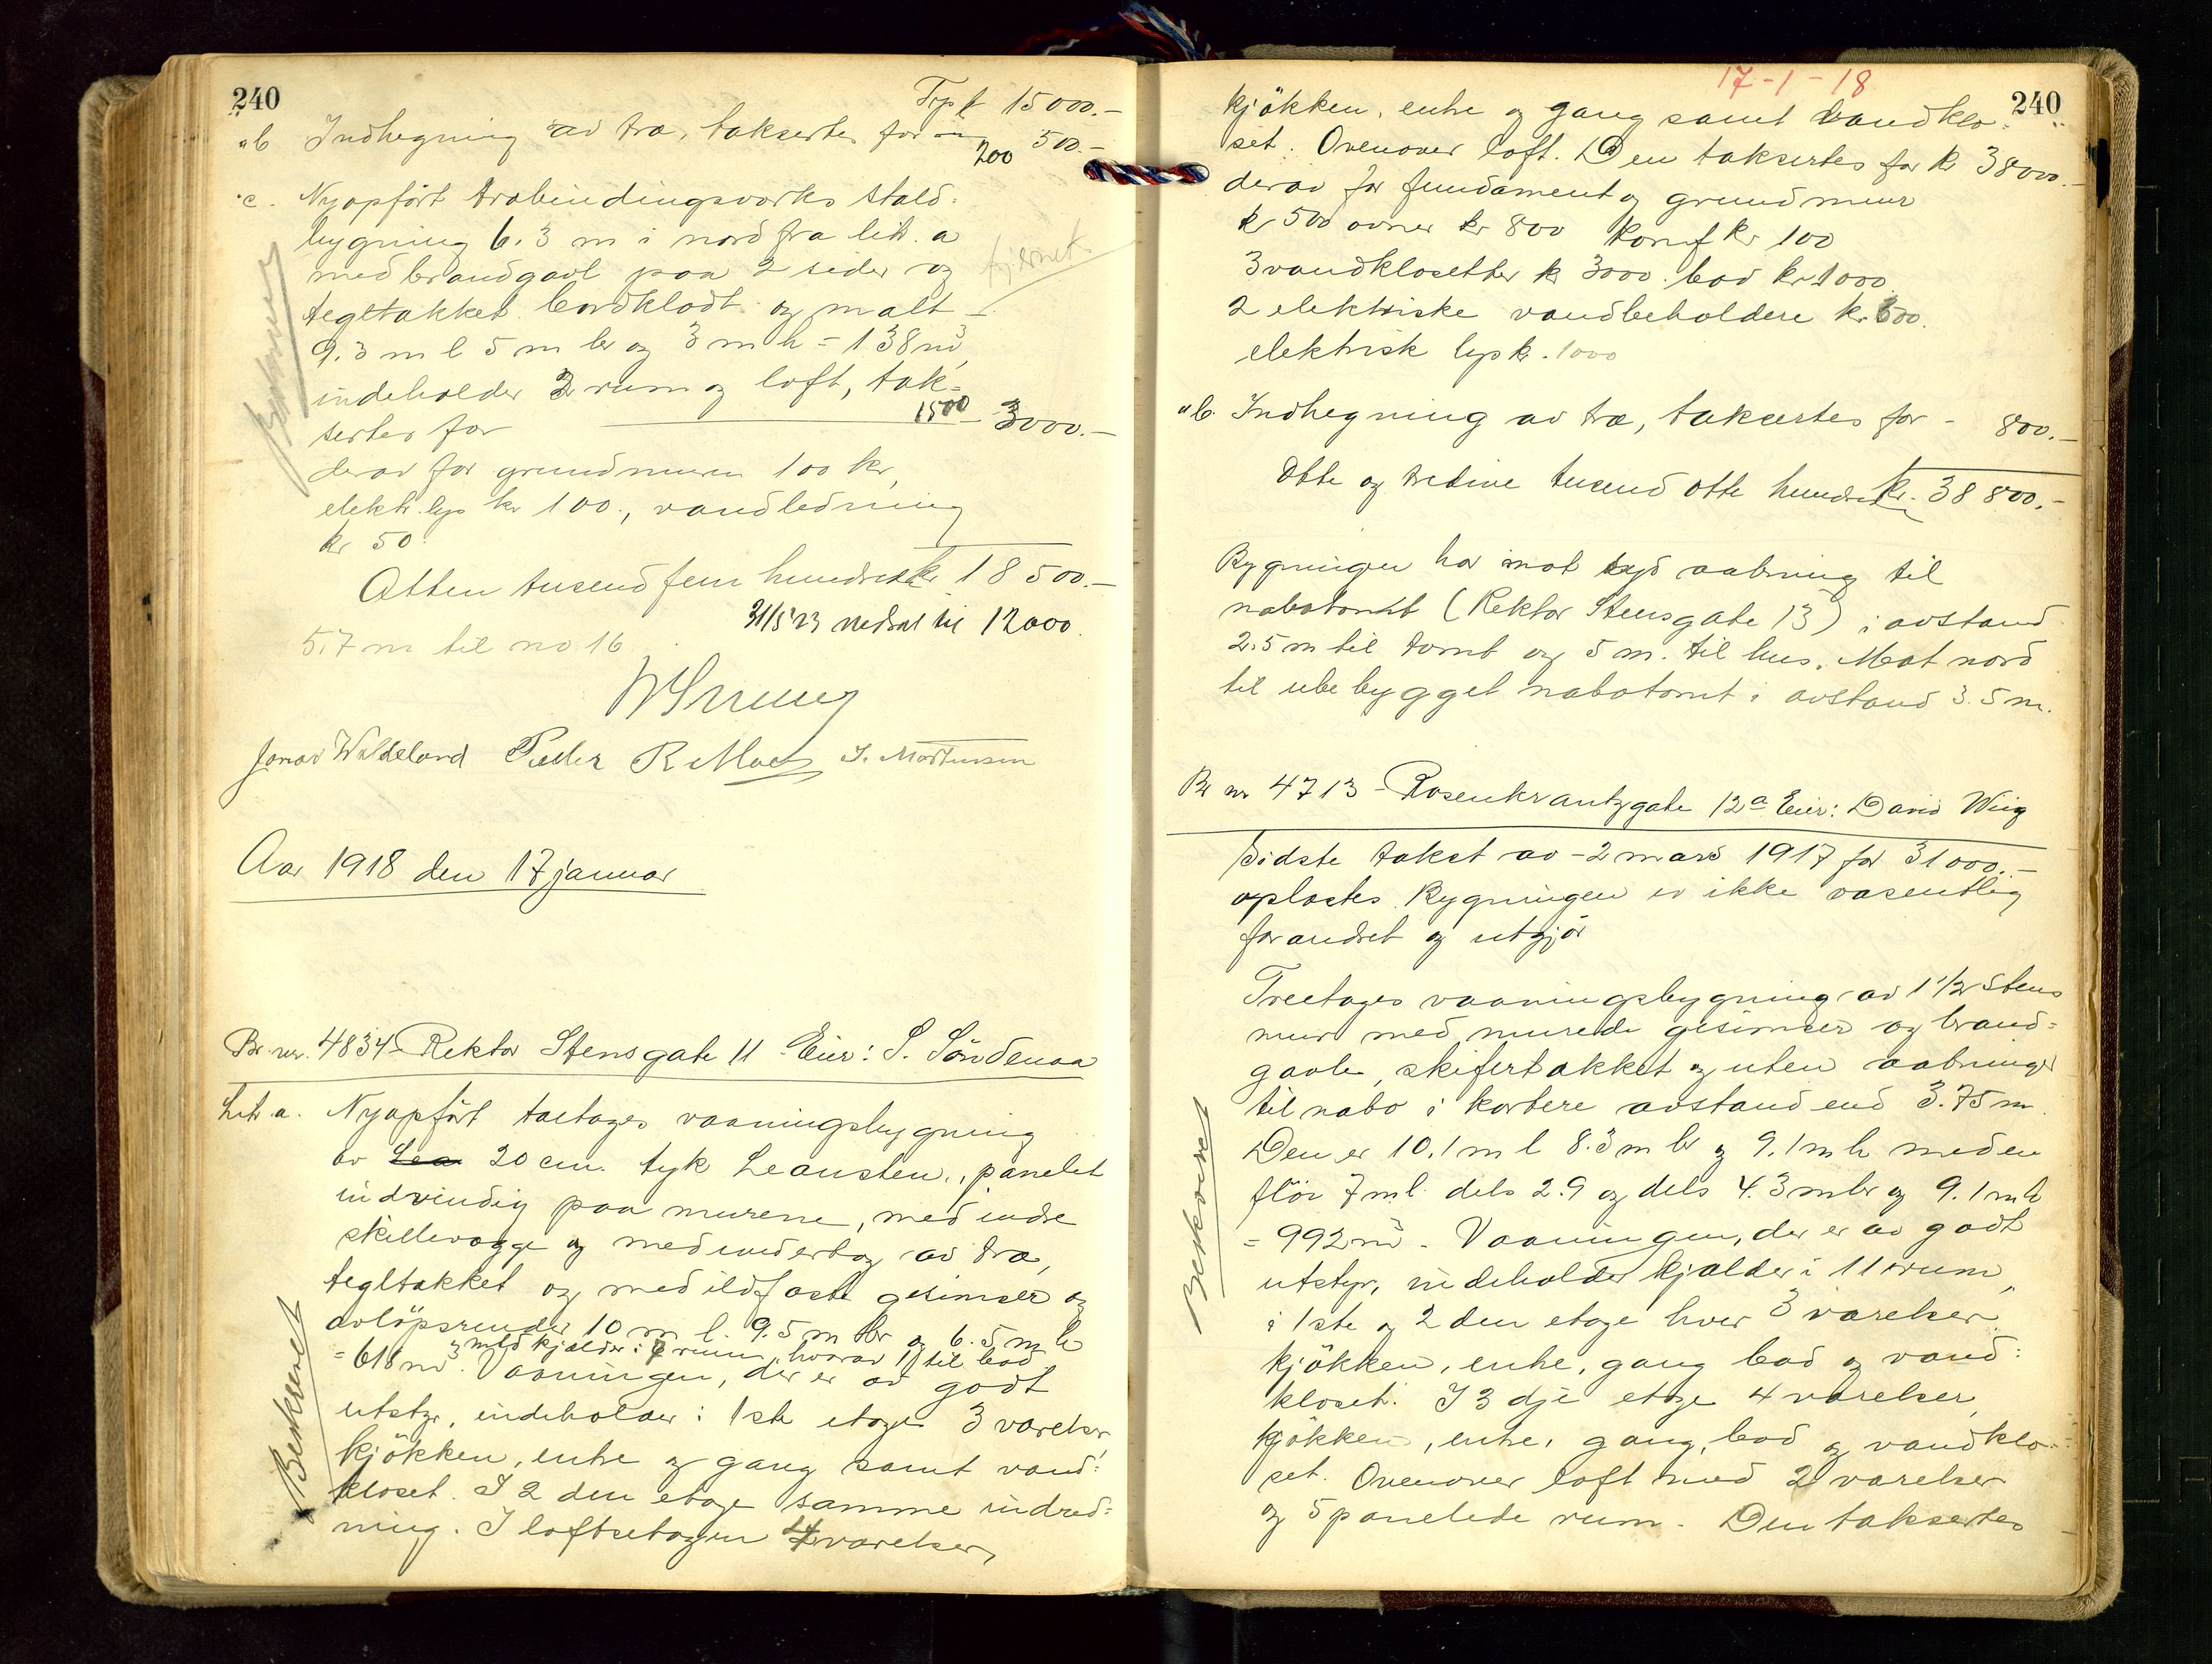 240
Trpt 15000.-
" b Indhegning av træ, taksertes for 500.-
200
" c. Nyopført træbindingsverks stald-
bygning 6.3 m i nord fra lit. a
med brandgavl paa 2 sider og
fjernet
tegltækket bordklædt og malt
9.3 m l 5 m br og 3 m h = 138 m³,
indeholder 2 rum og loft, tak-
sertes for 1500 3000.-
derav for grundmuren 100 kr,
elektr. lys kr 100., vandledning
kr 50.
Atten tusend fem hundrede kr 18500.-
31/5 23 nedsat til 12000.
5.7 m til no 16
Jonas Waldeland Peder R Moe J. Mortensen
Aar 1918 den 17 januar
Br. nr. 4834 - Rektor Stensgate 11 - Eier: S. Søndenaa
Lit. a. Nyopført toetages vaaningsbygning
av Lea 20 cm. tyk Leansten, panelet
indvendig paa murene, med indre
skillevægge og med undertag av træ,
tegltækket og med ildfaste gesimser og
avløpsrender 10 m l. 9.5 m br og 6.5 m h
og med kjælder i 7 rum, hvorav 1 til bad
= 618 m³. Vaaningen, der er av godt
utstyr, indeholder i 1ste etage 3 værelser,
kjøkken, entre og gang samt vand-
kloset. I 2den etage samme indred-
ning. I loftsetagen 4 værelser,
Beskrevet
17-1-18
240
kjøkken, entre og gang samt vandklo-
set. Ovenover loft. Den taksertes for kr 38000.-
derav for fundament og grundmur
kr 500 ovner kr 800 komf kr 100
3 vandklosetter kr 3000. bad kr 1000.
2 elektriske vandbeholdere kr. 600.
elektrisk lys kr. 1000
" b. Indhegning av træ, taksertes for - 800.-
Otte og tredive tusend otte hundrede kr. 38800.-
Bygningen har mot syd aabning til
nabotomt (Rektor Stensgate 13) i avstand
2.5 m til tomt og 5 m. til hus. Mot nord
til ubebygget nabotomt i avstand 3.5 m.
Br nr 4713 - Rosenkrantzgate 12a Eier: David Wiig
Sidste takst av - 2 mars 1917 for 31000.-
oplæstes. Bygningen er ikke væsentlig
forandret og utgjør
Treetages vaaningsbygning av 1 1/2 stens
mur med murede gesimser og brand-
gavle, skifertækket og uten aabninger
til nabo i kortere avstand end 3.75 m.
Den er 10.1 m l 8.3 m br og 9.1 m h med en
fløi 7 m l. dels 2.9 og dels 4.3 m br og 9.1 m h
= 992 m³. Vaaningen, der er av godt
utstyr, indeholder kjælder i 11 rum,
i 1ste og 2den etage hver 3 værelser
kjøkken, entre, gang bad og vand-
kloset. I 3dje etage 4 værelser,
kjøkken, entre, gang, bad og vandklo-
set. Ovenover loft med 2 værelser
og 5 panelede rum. Den taksertes
Beskrevet